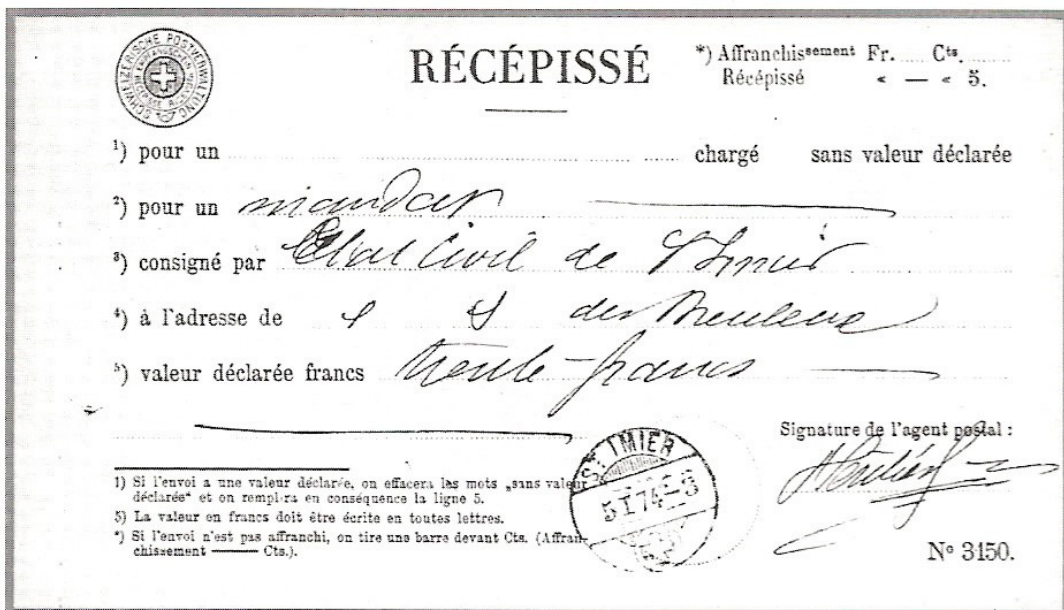 SCHWEIZERISCHE POSTVERWALTUNG
RÉCÉPISSÉ
*) Affranchissement Fr. Cts.
Récépissé « — « 5.
1) pour un chargé sans valeur déclarée
2) pour un mandat
3) consigné par Etat Civil de St Imier
4) à l'adresse de " " des Breuleux
5) valeur déclarée francs trente-francs
Signature de l'agent postal :
1) Si l'envoi a une valeur déclarée, on effacera les mots „sans valeur
déclarée“ et on remplira en conséquence la ligne 5.
5) La valeur en francs doit être écrite en toutes lettres.
*) Si l'envoi n'est pas affranchi, on tire une barre devant Cts. (Affran-
chissement —— Cts.).
ST IMIER
5 I 74 - 8
No 3150.